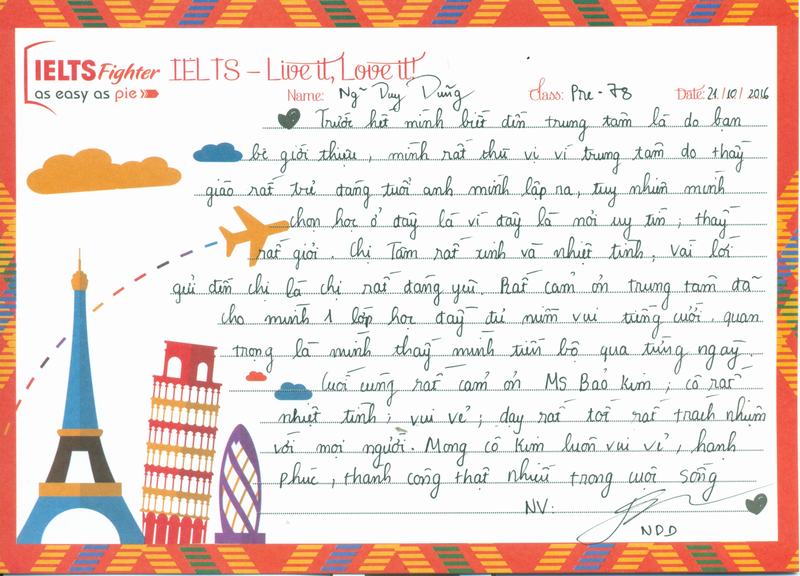 IELTS Fighter
as easy as pie
IELTS – Live it, Love it!
Name: Ngỹ Duy Dũng Class: Pre - 78 Date: 21/10/2016
Trước hết mình biết đến trung tâm là do bạn
bè giới thiệu, mình rất thú vị vì trung tâm do thầy
giáo rất trẻ đáng tuổi anh mình lập ra, tuy nhiên mình
chọn học ở đây là vì đây là nơi uy tín; thầy
rất giỏi. Chị Tâm rất xinh và nhiệt tình; Vài lời
gửi đến chị là chị rất đáng yêu. Rất cảm ơn trung tâm đã
cho mình 1 lớp học đầy đủ niềm vui tiếng cười. quan
trọng là mình thấy mình tiến bộ qua từng ngày.
Cuối cùng rất cảm ơn Ms Bảo Kim; cô rất
nhiệt tình; vui vẻ; dạy rất tốt rất trách nhiệm
với mọi người. Mong cô Kim luôn vui vẻ, hạnh
phúc, thành công thật nhiều trong cuộc sống
NV:
NDD